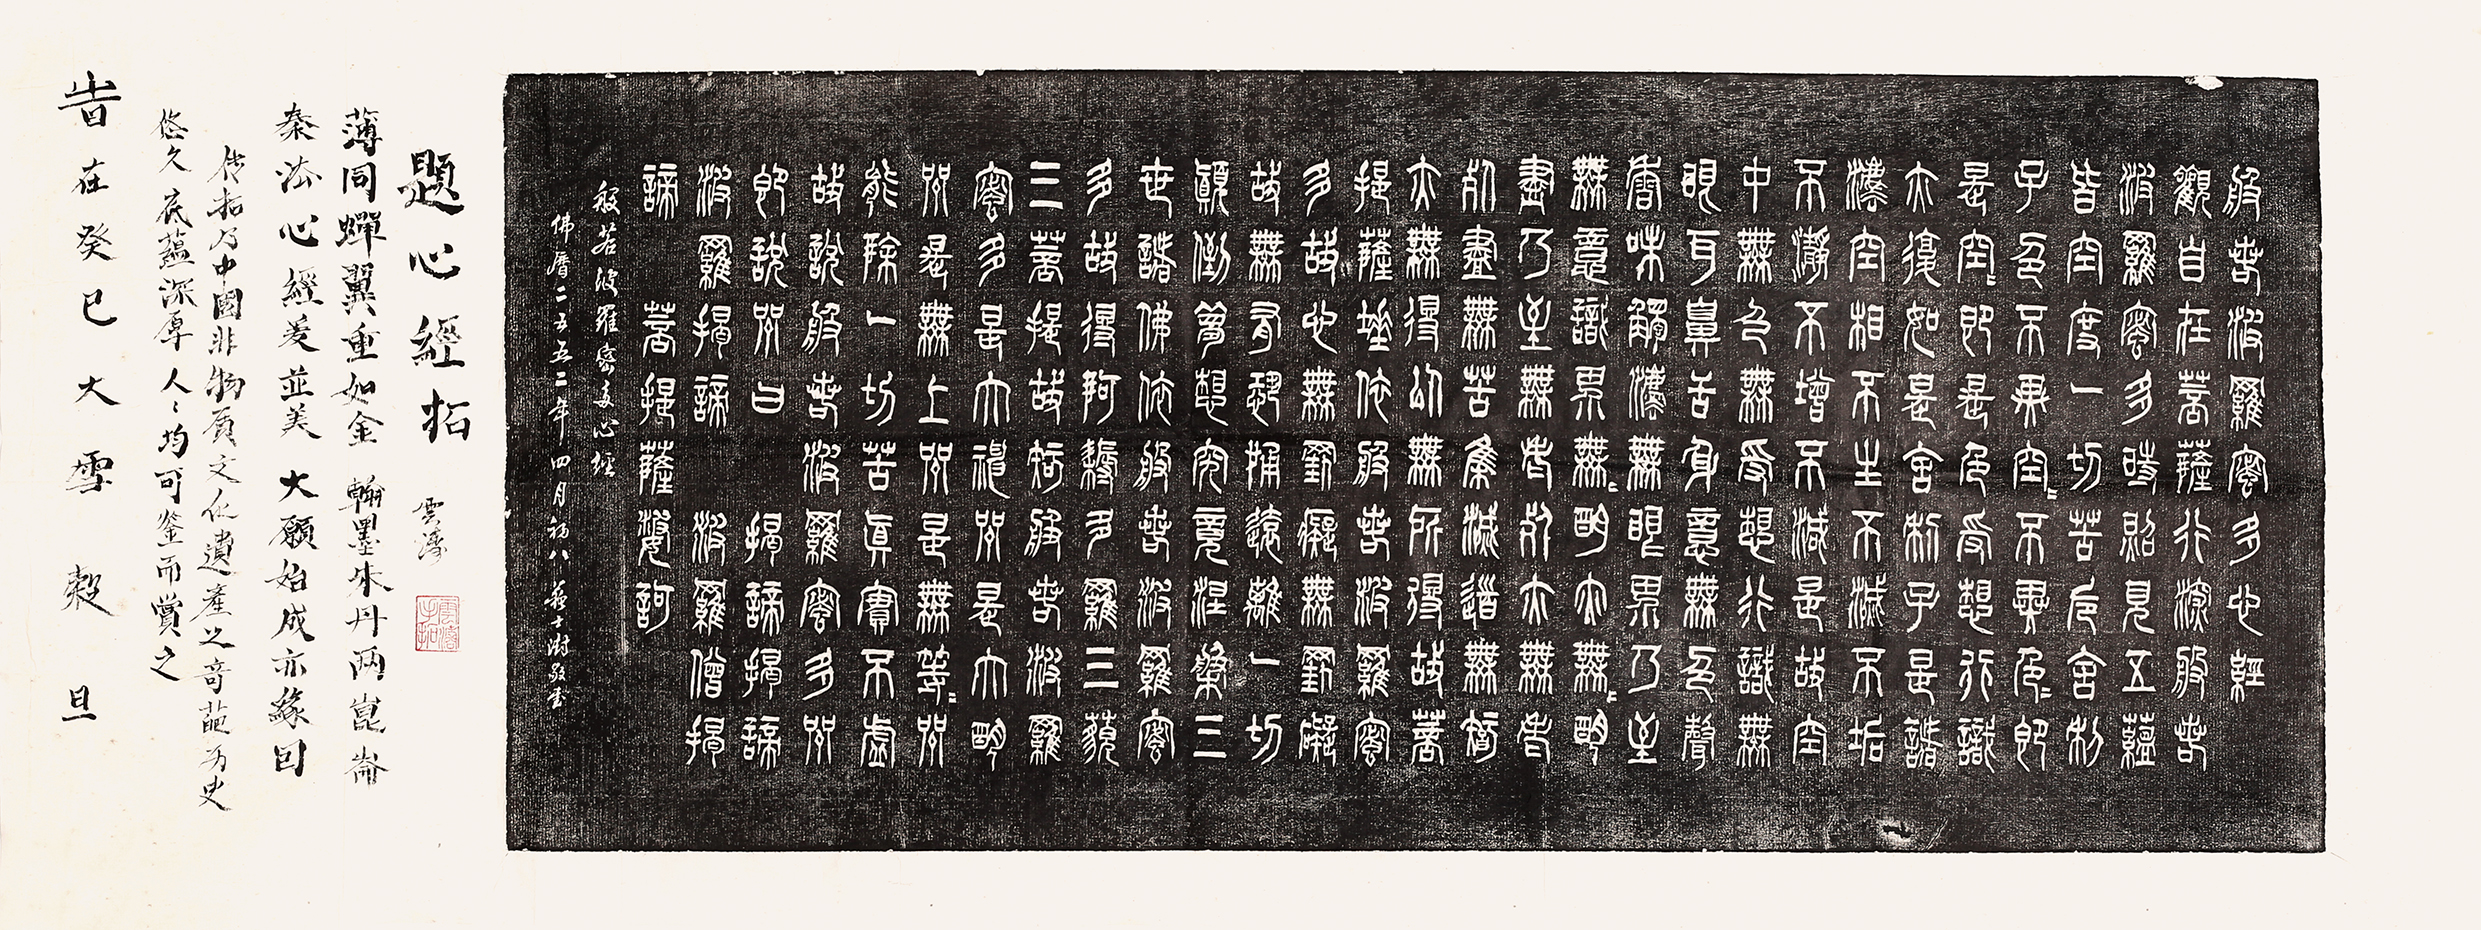 般若波羅蜜多心經
觀自在菩薩行深般若
波羅蜜多時照見五蘊
皆空度一切苦厄舍利
子色不異空〻不異色〻即
是空〻即是色受想行識
亦復如是舍利子是諸
法空相不生不滅不垢
不淨不增不減是故空
中無色無受想行識無
眼耳鼻舌身意無色聲
香味觸法無眼界乃至
無意識界無〻明亦無〻明
盡乃至無老死亦無老
死盡無苦集滅道無智
亦無得以無所得故菩
提薩埵依般若波羅蜜
多故心無罣礙無罣礙
故無有恐怖遠離一切
顛倒夢想究竟涅槃三
世諸佛依般若波羅蜜
多故得阿耨多羅三藐
三菩提故知般若波羅
蜜多是大神咒是大明
咒是無上咒是無等〻咒
能除一切苦真實不虛
故說般若波羅蜜多咒
即說咒曰 揭諦揭諦
波羅揭諦 波羅僧揭
諦 菩提薩婆訶
般若波羅密多心經
佛曆二五五二年四月初八 蘇士澍敬書
題心經拓 雲濤
雲濤手拓
薄同蟬翼重如金 翰墨朱丹兩崑崙
秦法心經爰並美 大願始成亦緣因
傳拓乃中國非物質文化遺產之奇葩為史
悠久底蘊深厚人〻均可鑒而賞之
旹在癸巳大雪穀旦